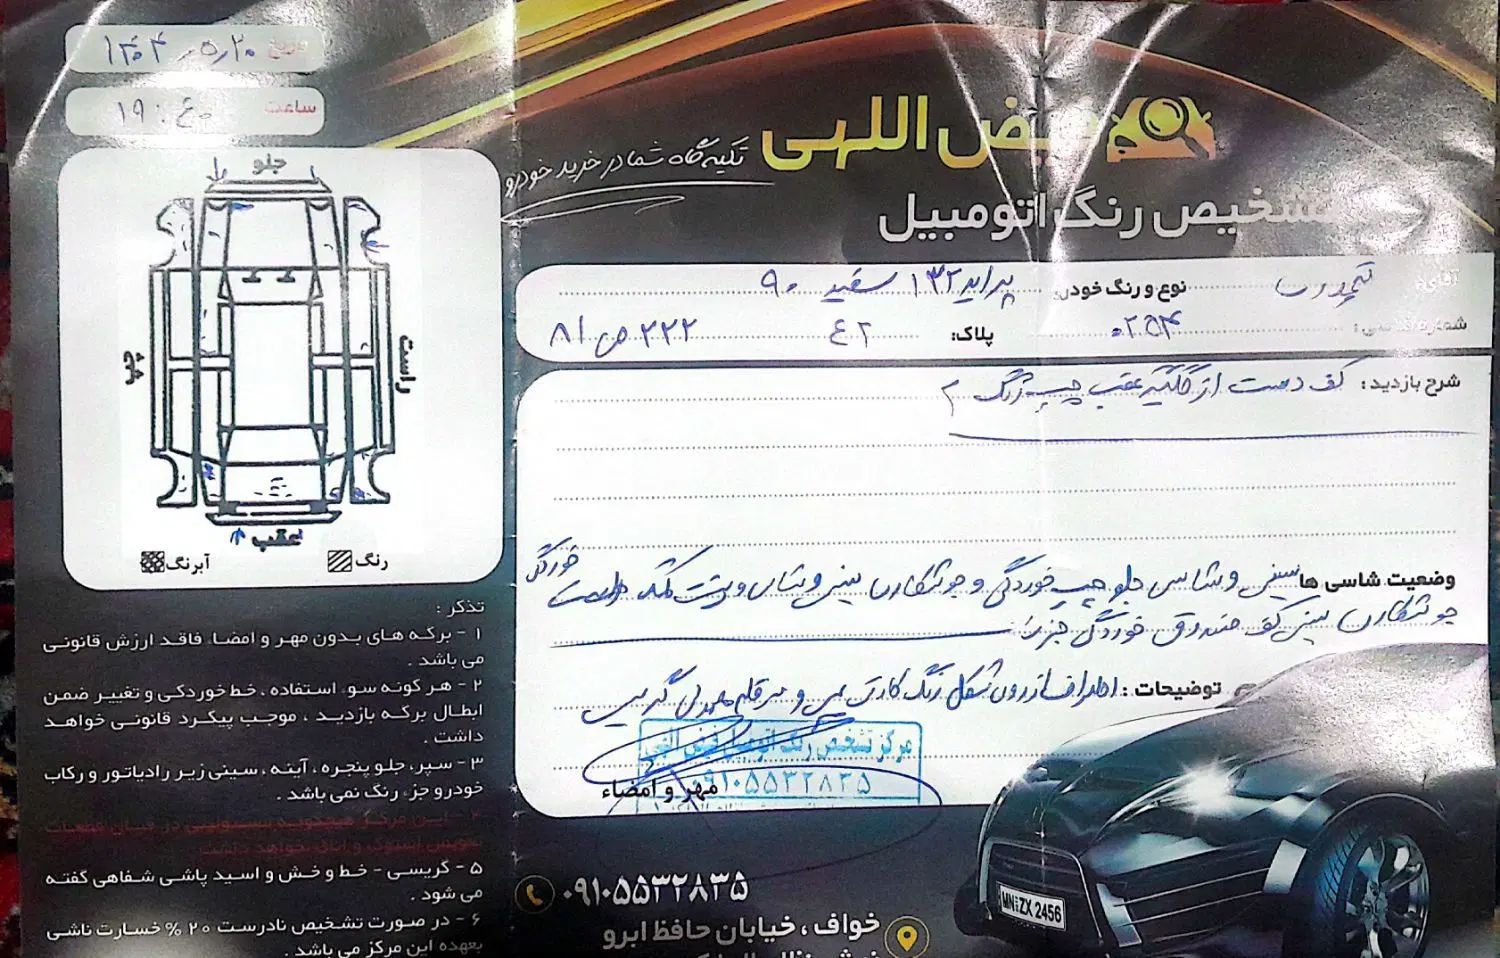 تاریخ ۱۴۰۴ر۵ر۲۰
ساعت ۱۹:۴۰
فیض اللهی
تکیه گاه شما در خرید خودرو
تشخیص رنگ اتومبیل
آقای: نوع و رنگ خودرو: پراید ۱۳۲ سفید ۹۰
شماره شاسی: ۰۲۵۴ پلاک: ۴۲ ۲۲۲ ص ۸۱
شرح بازدید: کف دست از گلگیر عقب چپ رنگ
جلو
راست
چپ
عقب
رنگ
آبرنگ
وضعیت شاسی ها: سینی و شاسی جلو چپ خوردگی و جوشکاری سینی و شاسی و پشت
جوشکاری سینی کف صندوق خوردگی جزئی
توضیحات:
مرکز تشخیص رنگ اتومبیل فیض الهی
۰۹۱۰۵۵۳۲۸۳۵
مهر و امضاء
تذکر :
۱ - برگه های بدون مهر و امضا، فاقد ارزش قانونی
می باشد .
۲ - هر گونه سوء استفاده ، خط خوردگی و تغییر ضمن
ابطال برگه بازدید ، موجب پیگرد قانونی خواهد
داشت .
۳ - سپر، جلو پنجره ، آینه ، سینی زیر رادیاتور و رکاب
خودرو جزء رنگ نمی باشد .
۴ - این مرکز هیچگونه مسئولیتی در قبال قطعات
تعویض استوک و اتاق نخواهد داشت
۵ - گریسی - خط و خش و اسید پاشی شفاهی گفته
می شود .
۶ - در صورت تشخیص نادرست ۲۰ % خسارت ناشی
بعهده این مرکز می باشد .
۰۹۱۰۵۵۳۲۸۳۵
خواف ، خیابان حافظ ابرو
MN:ZX 2456